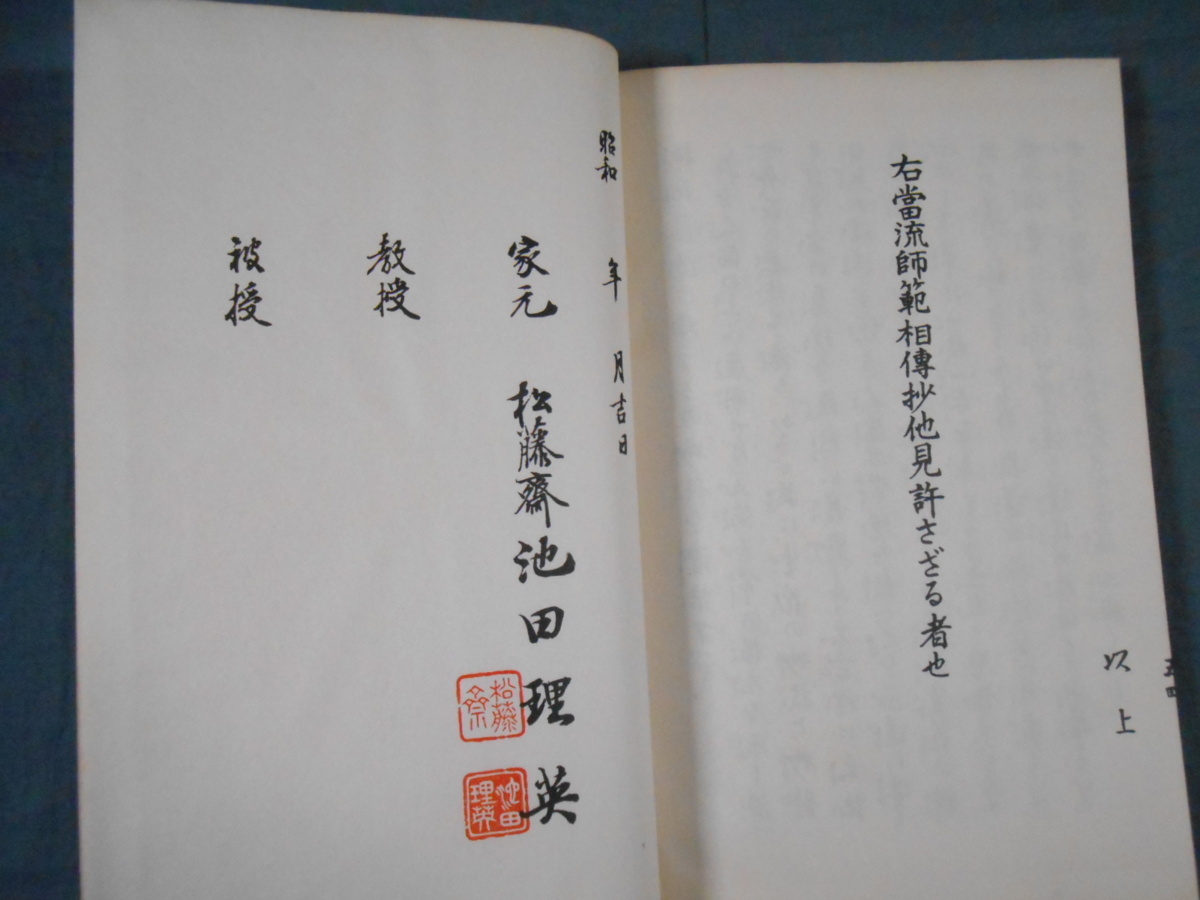 五四
以上
右當流師範相傳抄他見許さざる者也
昭和　年　月吉日
家元　松藤齋池田理英
松藤齋
池田理英
教授
被授